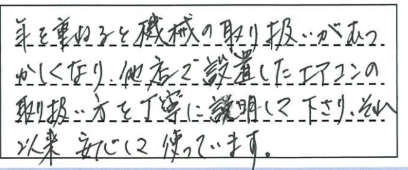 年を重ねると機械の取り扱いがむつ
かしくなり、他店で設置したエアコンの
取り扱い方を丁寧に説明して下さり、それ
以来安心して使っています。